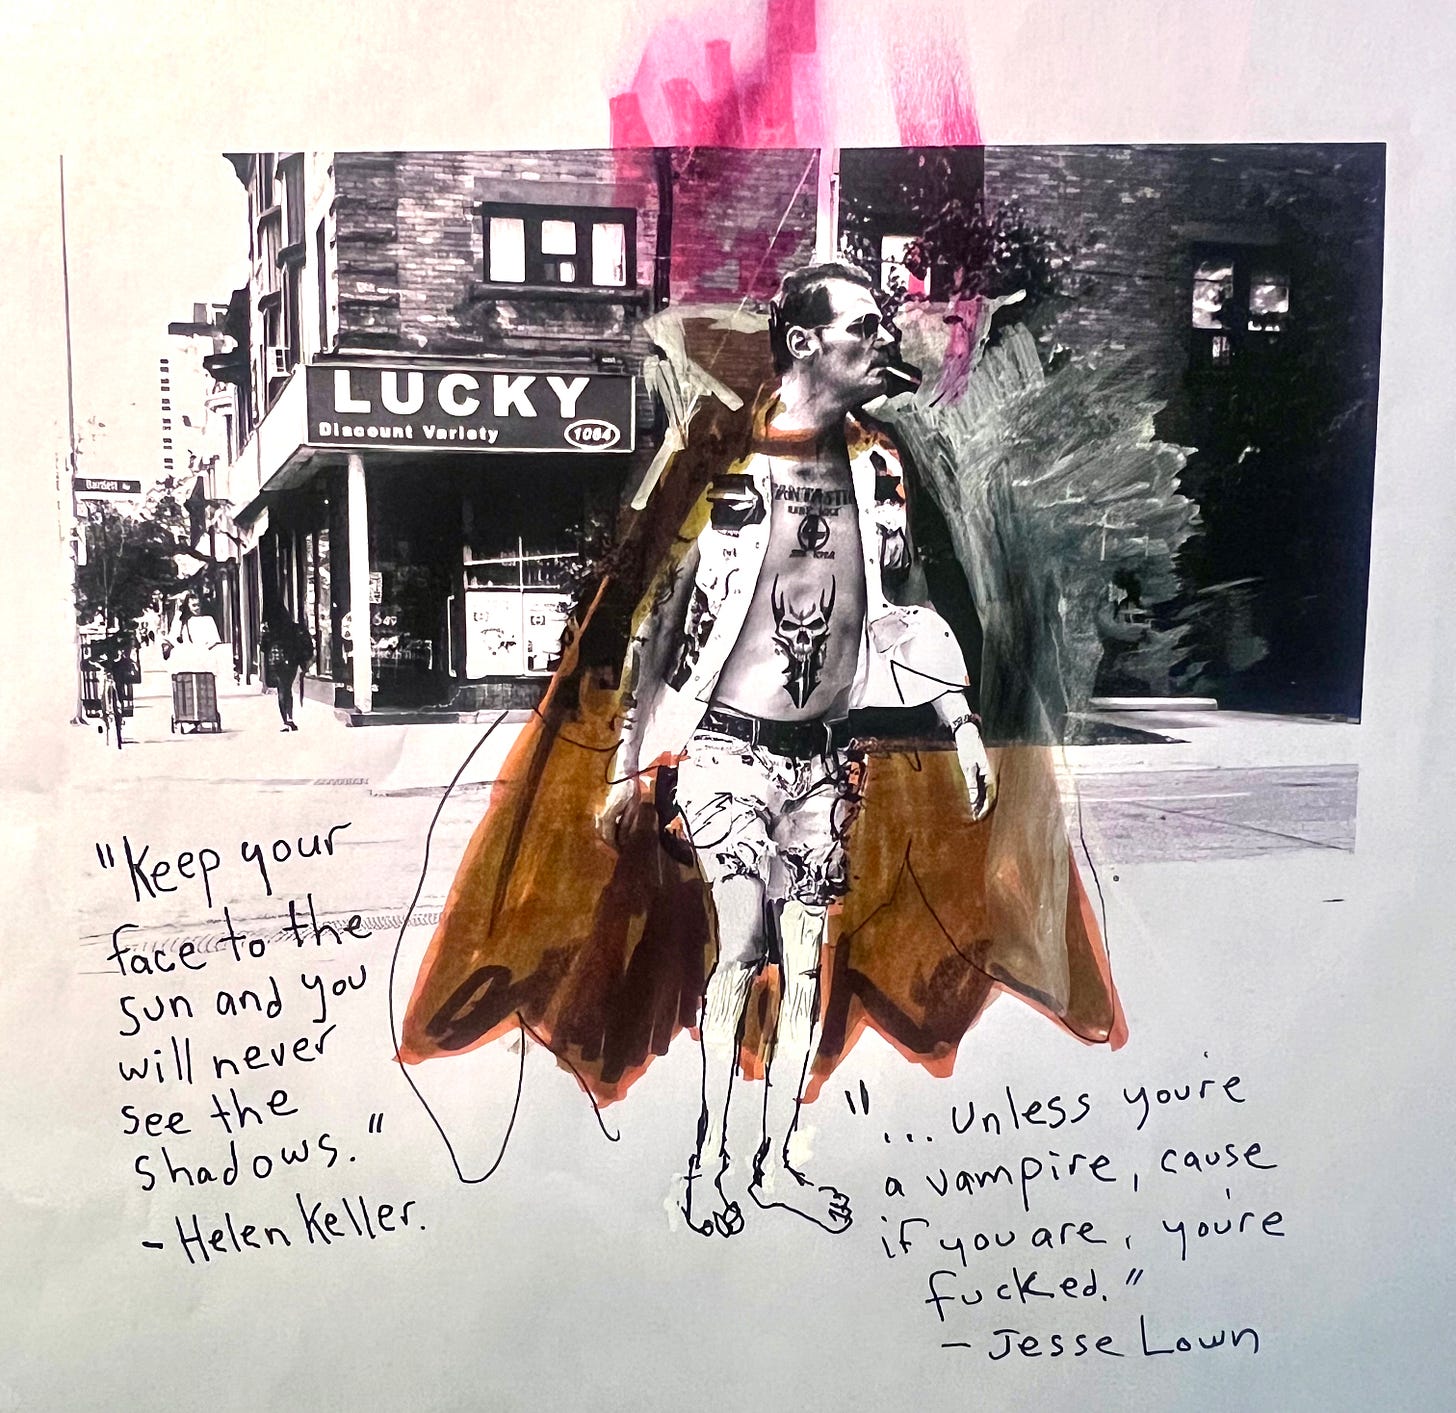 LUCKY
Discount Variety
1084
Bartlett Av
"Keep your
face to the
sun and you
will never
see the
shadows."
- Helen Keller.
"
... Unless you're
a vampire, cause
if you are, you're
fucked."
- Jesse Lown